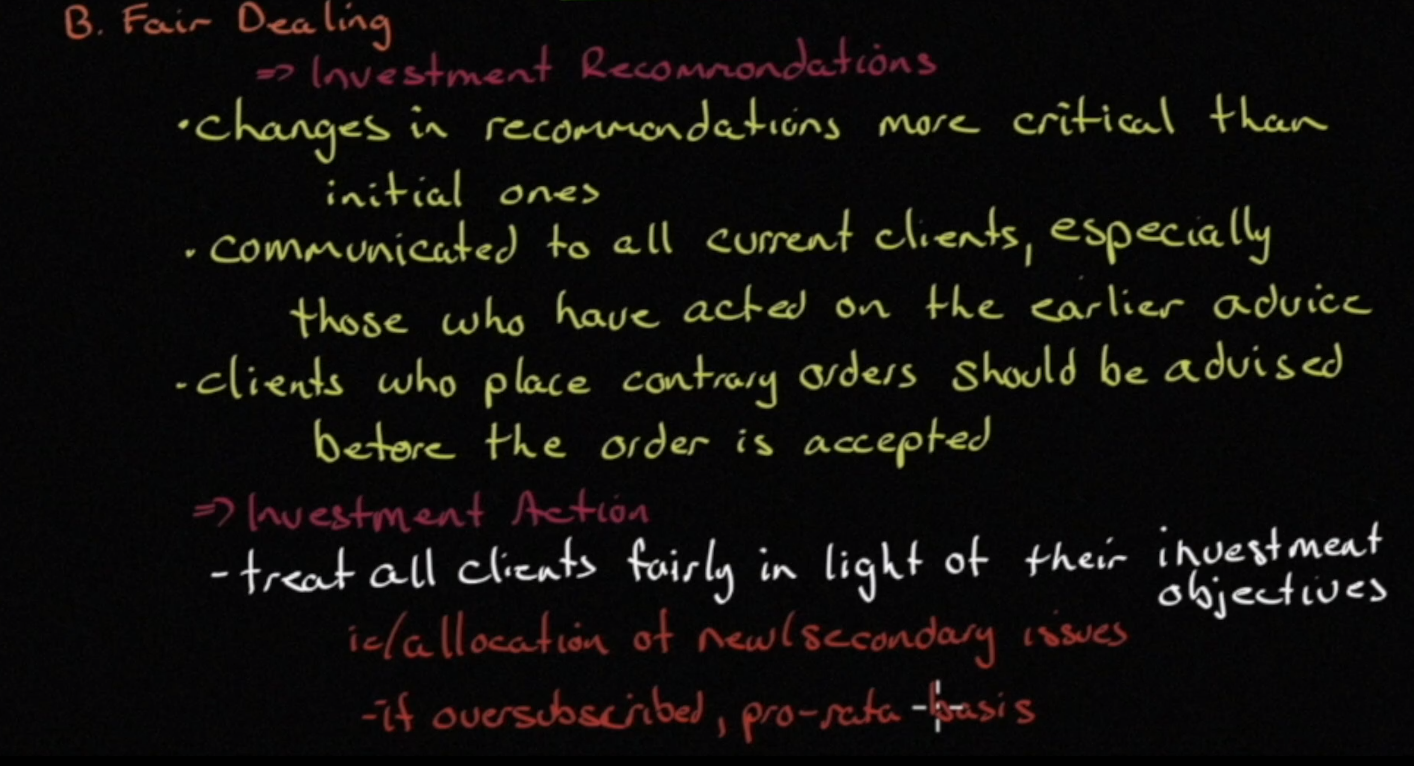 B. Fair Dealing
=> Investment Recommondations
• changes in recommondations more critical than
initial ones
• communicated to all current clients, especially
those who have acted on the earlier advice
- clients who place contrary orders should be advised
before the order is accepted
=> Investment Action
- treat all clients fairly in light of their investment
objectives
ie/allocation of new/secondary issues
- if oversubscribed, pro-rata - basis